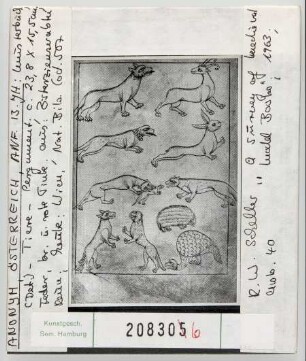 ANONYM ÖSTERREICH, ANF. 13. JH: Musterbuch
(Det.) Tiere – Pergament. c. 23,8 x 15,5 cm
Feder, br. u. rote Tinte, aus: Zisterzienserabtei
Reun; heute: Wien, Nat. Bibl. Cod. 507
R.W. Scheller "A Survey of Medieval
Model Books", 1963,
Abb. 40
Kunstgesch.
Sem. Hamburg
208305